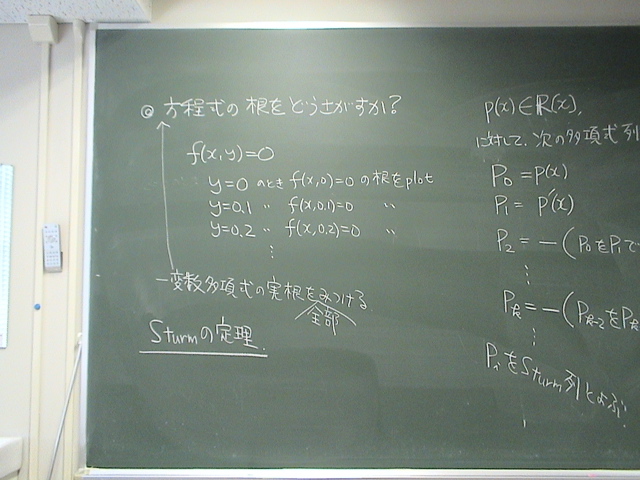 ◎ 方程式の根をどうさがすか?
f(x,y)=0
y=0 のとき f(x,0)=0 の根をplot
y=0.1 〃 f(x,0.1)=0 〃
y=0.2 〃 f(x,0.2)=0 〃
⋮
一変数多項式の実根をみつける
全部
Sturmの定理.
p(x)∈R(x),
に対して,次の多項式列
P₀ = p(x)
P₁ = p'(x)
P₂ = -(P₀をP₁で
⋮
P_k = -(P_{k-2}をP_k
⋮
P_iをSturm列とよぶ.